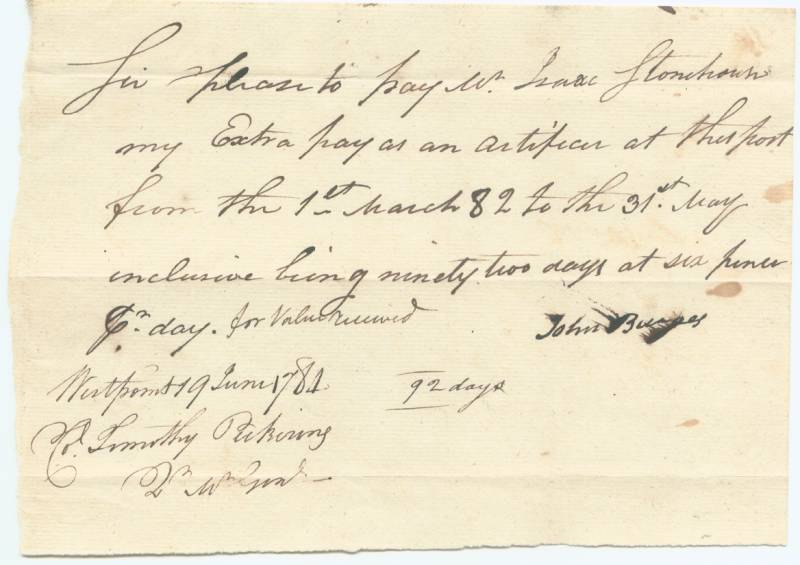 Sir please to pay Mr. Isaac Stonehouse
my Extra pay as an artificer at this post
from the 1st March 82 to the 31st. May
inclusive being ninety two days at six pence
Pr. day. for Value received
John Burges
Westpoint 19 June 1784 92 days
Col. Timothy Pickering
Qr Mr Genl